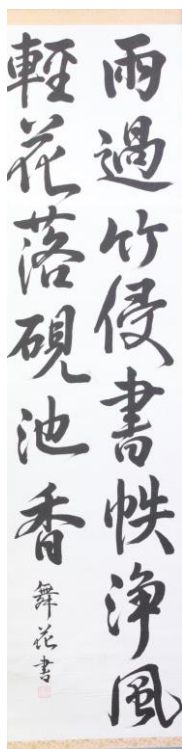 雨過竹侵書帙浄風
輕花落硯池香
舞花書